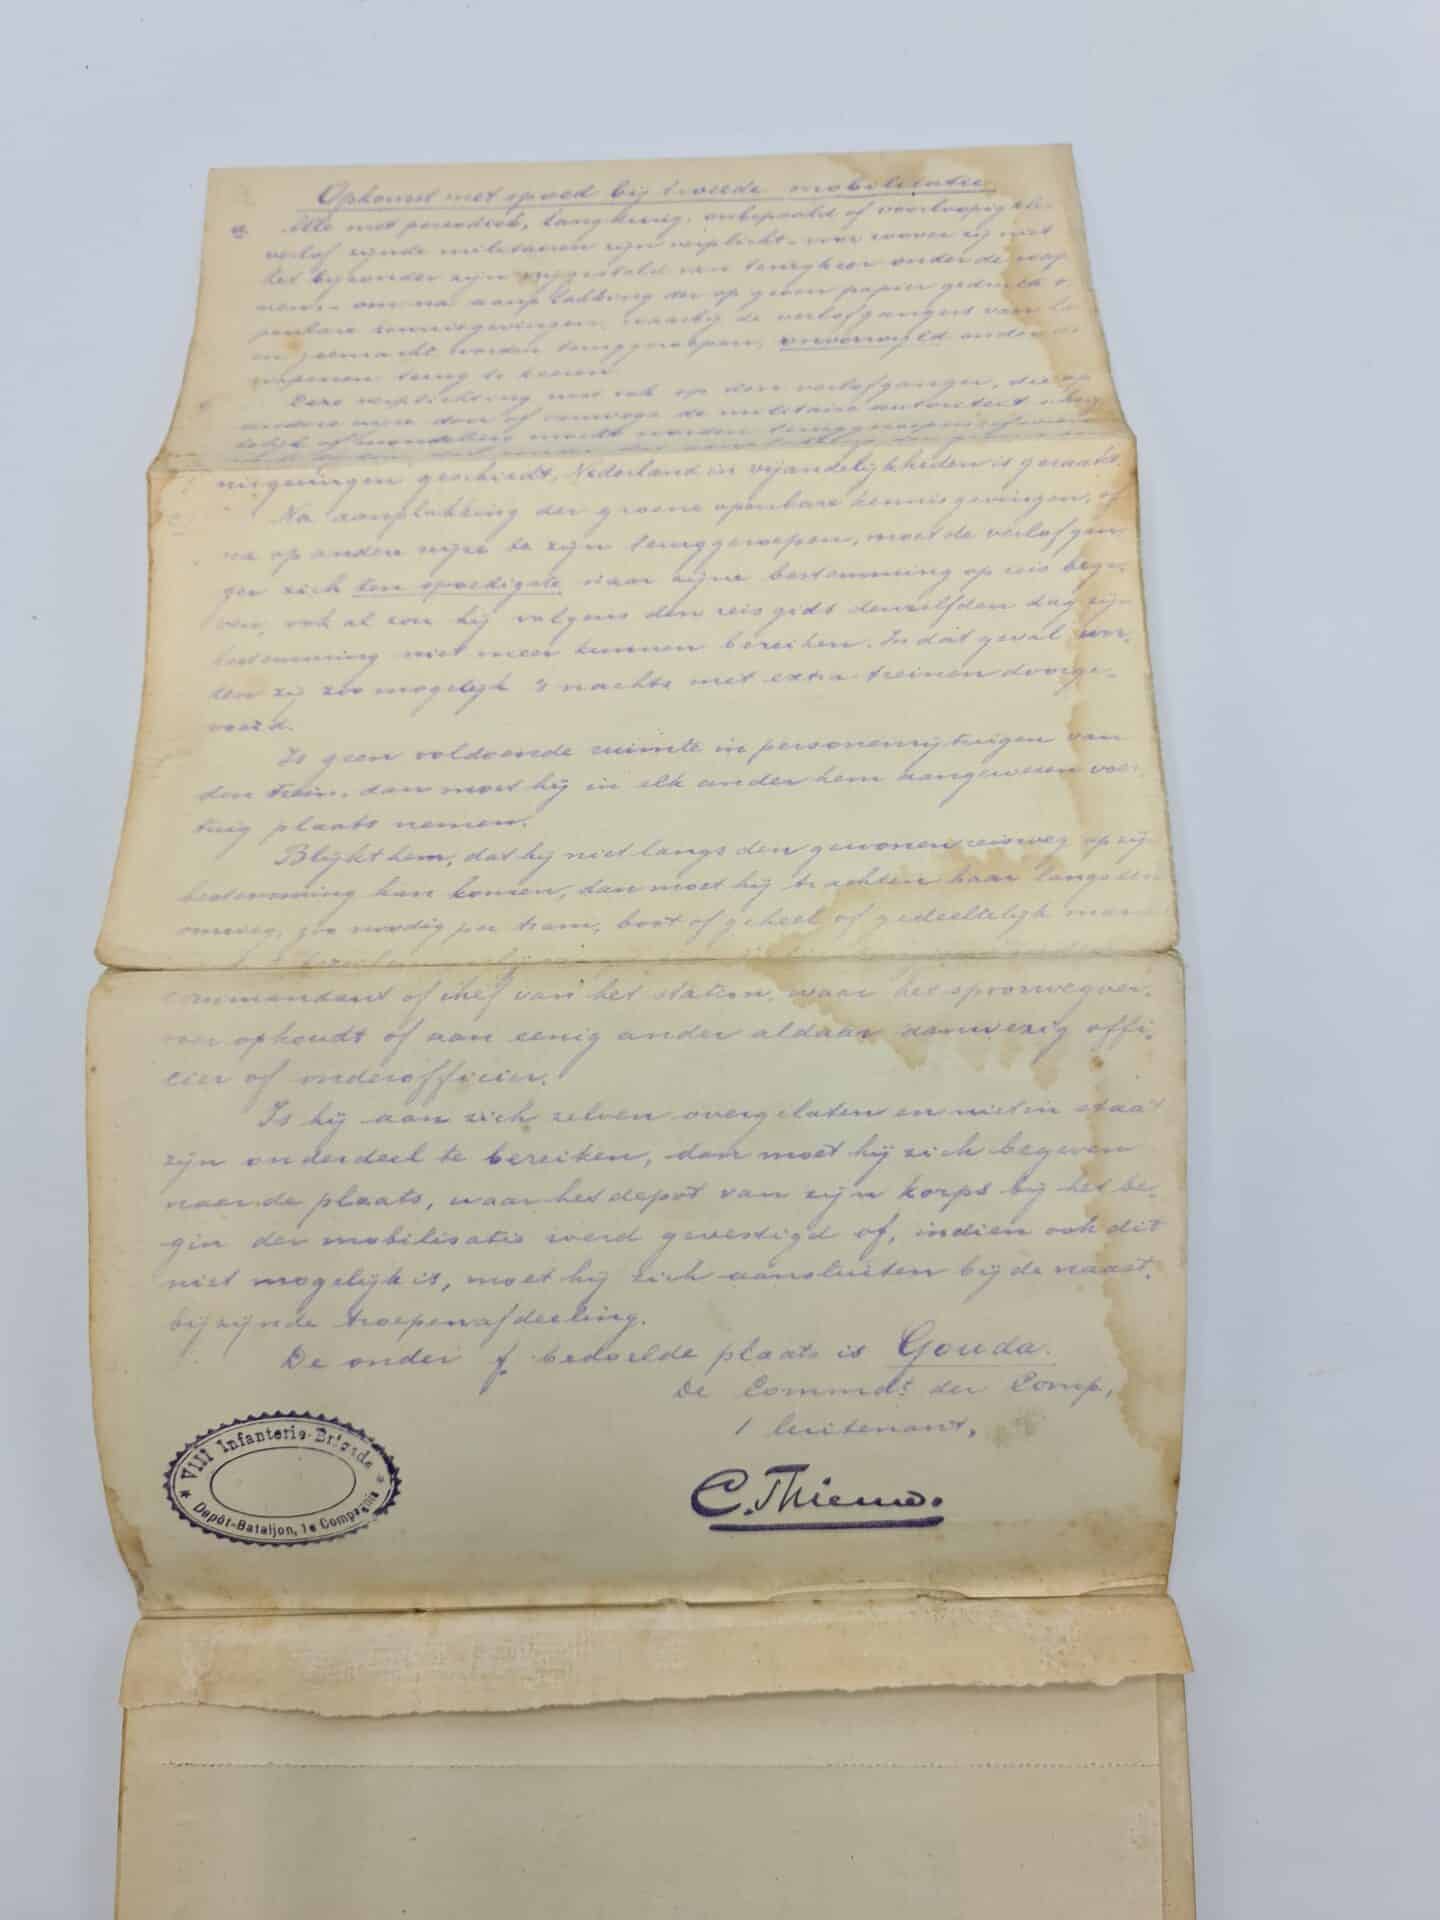 Opkomst met spoed bij tweede mobilisatie.
a. Alle met periodiek, langdurig, onbepaald of voorloopig
verlof zijnde militairen zijn verplicht, voor zoover zij niet
het bijzonder zijn vrijgesteld van terugkeer onder de wap
nen, om na aanplakking der op groen papier gedrukte o
penbare kennisgevingen, waarbij de verlofgangers van la
en zeemacht worden teruggeroepen, onverwijld onder de
wapenen terug te keeren.
Deze verplichting rust ook op den verlofganger, die op
andere wijze door of vanwege de militaire autoriteit
of mondeling mocht worden teruggeroepen
nisgevingen geschiedt, Nederland in vijandelijkheden is geraakt.
Na aanplakking der groene openbare kennisgevingen, of
na op andere wijze te zijn teruggeroepen, moet de verlofgan
ger zich ten spoedigste naar zijne bestemming op reis bege-
ven, ook al zou hij volgens den reisgids denzelfden dag zijn
bestemming niet meer kunnen bereiken. In dat geval wor-
den zij zoo mogelijk 's nachts met extra treinen doorge-
voerd.
Is geen voldoende ruimte in personenrijtuigen van
den trein, dan moet hij in elk ander hem aangewezen voer
tuig plaats nemen.
Blijkt hem, dat hij niet langs den gewonen reisweg op zij
bestemming kan komen, dan moet hij trachten haar langs den
omweg, zoo noodig per tram, boot of geheel of gedeeltelijk
commandant of chef van het station, waar het spoorwegver-
voer ophoudt of aan eenig ander aldaar aanwezig offi-
cier of onderofficier.
Is hij aan zich zelven overgelaten en niet in staat
zijn onderdeel te bereiken, dan moet hij zich begeven
naar de plaats, waar het depot van zijn korps bij het be-
gin der mobilisatie werd gevestigd of, indien ook dit
niet mogelijk is, moet hij zich aansluiten bij de naast-
bijzijnde troepenafdeeling.
De onder f bedoelde plaats is Gouda.
De Commdt. der Comp,
1 luitenant,
C. Thieme.
VIII Infanterie-Brigade
* Depôt-Bataljon, 1e Compagnie *